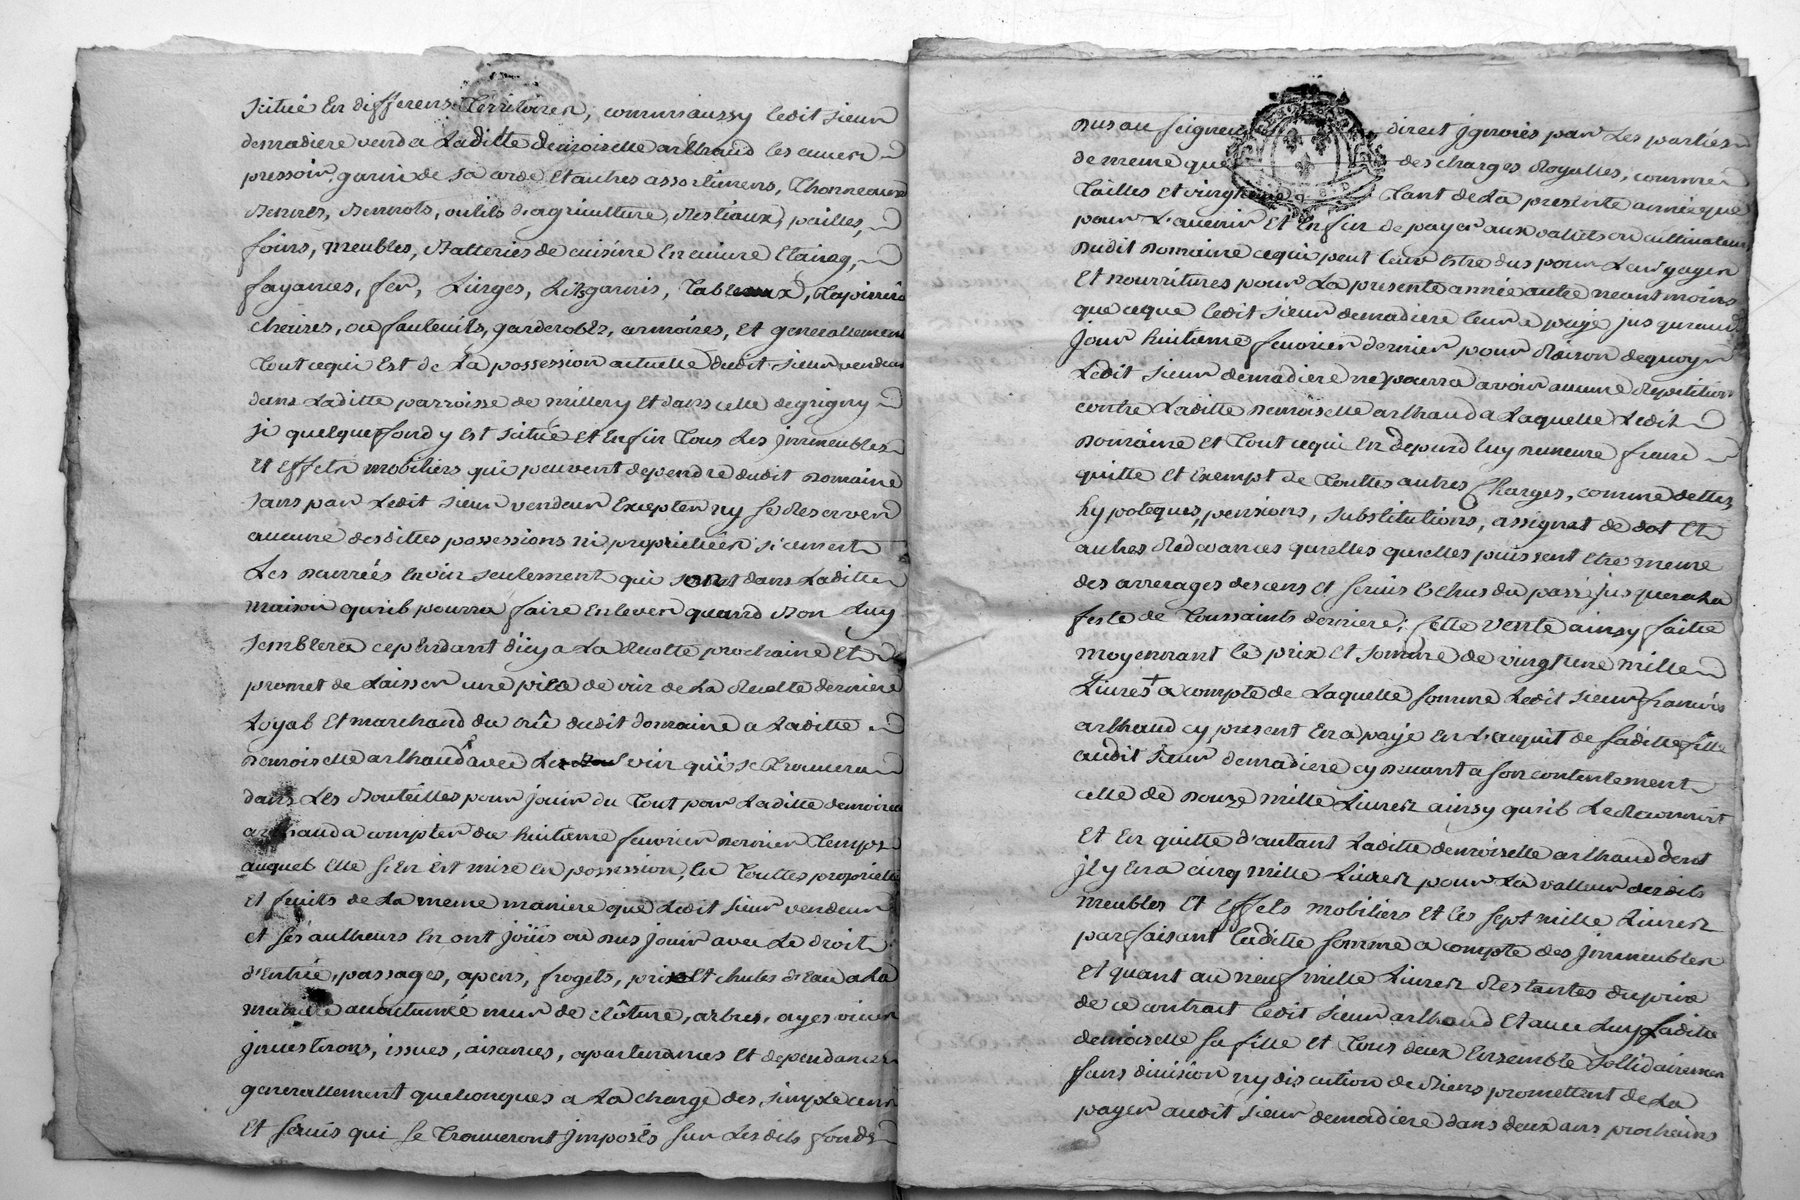 scitué en differens territoires, comm'aussy ledit sieur
demadiere vend a laditte demoiselle arthaud les cuves
pressoir garni de sa corde et autres assortimens, thonneaux
bennes, bennots, outils d'agriculture, bestiaux, pailles,
foins, meubles, batteries de cuisine en cuivre etaing,
fayances, fer, linges, lits garnis, tableaux, tapisseries
chaires, ou fauteuils, garderobes, armoires, et generallement
tout cequi est de la possession actuelle dudit sieur vendeur
dans laditte parroisse de millery et dans celle de grigny
si quelque fond y est scitué et enfin tous les jmmeubles
et effets mobiliers qui peuvent dependre dudit domaine
sans par ledit sieur vendeur excepter ny se reserver
aucune desdittes possessions ni proprietées si cen'est
les danrées en vin seulement qui sont dans laditte
maison qu'il pourra faire enlever quand bon luy
semblera cependant d'icy a la recolte prochaine et
promet de laisser une piece de vin de la recolte derniere
loyal et marchand du crû dudit domaine a laditte
demoiselle arthaud avec le vin qui se trouvera
dans les bouteilles pour jouir du tout par laditte demoiselle
arthaud a compter du huitieme fevrier dernier temps
auquel elle s'en est mise en possession, en touttes proprietés
et fruits de la meme maniere que ledit sieur vendeur
et ses autheurs en ont joüis ou dus jouir avec le droit
d'entrée, passages, apens, frogets, prise et chutes d'eau a la
maniere accoutumée mur de clôture, arbres, ayes vives
jnvestizons, issues, aisances, apartenances et dependances
generallement quelconques a la charge des simple cens
et servis qui se trouveront jmposés sur lesdits fonds
dus au seigneur direct jgnorés par les parties
de meme que des charges royalles, comme
tailles et vingtieme tant de la presente année que
pour l'avenir et enfin de payer aux valets ou cultivateurs
dudit domaine cequi peut leur estre dus pour leur gages
et nourritures pour la presente année autre neantmoins
que ceque ledit sieur demadiere leur a payé jusqu'audit
jour huitieme fevrier dernier pour raison dequoy
ledit sieur demadiere ne pourra avoir aucune repetition
contre laditte demoiselle arthaud a laquelle ledit
domaine et tout cequi en depend luy demeure franc
quitte et exempt de touttes autres charges, comme dettes
hypoteques, pensions, substitutions, assignat de dot et
autres redevances quelles quelles puissent etre meme
des arrerages des cens et servis echus du passé jusques a la
feste de toussaints derniere; Cette vente ainsy faitte
moyennant le prix et somme de vingt une mille
livres + a compte de laquelle somme ledit sieur francois
arthaud cy present en a payé en l'acquit de saditte fille
audit sieur demadiere cy devant a son contentement
celle de douze mille livres ainsy qu'il le reconnoit
et en quitte d'autant laditte demoiselle arthaud dont
jl y en a cinq mille livres pour la valleur desdits
meubles et effets mobiliers et les sept mille livres
parfaisant laditte somme a compte des jmmeubles
et quant au neuf mille livres restantes du prix
de ce contrat ledit sieur arthaud et avec luy laditte
demoiselle sa fille et tous deux ensemble sollidairement
sans division ny discution de biens promettent de la
payer audit sieur demadiere dans deux ans prochains